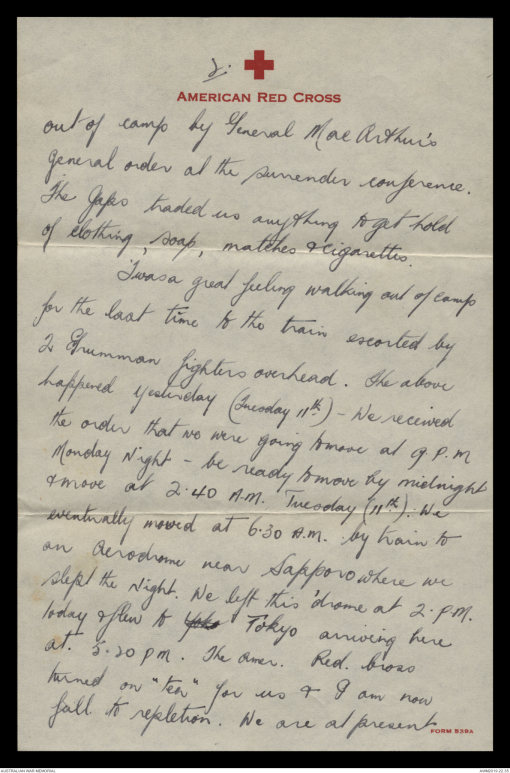 2.
AMERICAN RED CROSS
out of camp by General Mac Arthur's
general order at the surrender conference.
The Japs traded us anything to get hold
of clothing, soap, matches & cigarettes.
Twas a great feeling walking out of camp
for the last time to the train escorted by
2 Grumman fighters overhead. The above
happened yesterday (Tuesday 11th) - We received
the order that we were going to move at 9. P.M
Monday Night - be ready to move by midnight
& move at 2.40 A.M. Tuesday (11th). We
eventually moved at 6.30 A.M. by train to
an Aerodrome near Sapporo where we
slept the Night. We left this 'drome at 2. P.M.
today & flew to Yoko Tokyo arriving here
at 5.20 PM. The Amer. Red. Cross
turned on "tea" for us & I am now
full to repletion. We are at present
FORM 539A
AUSTRALIAN WAR MEMORIAL